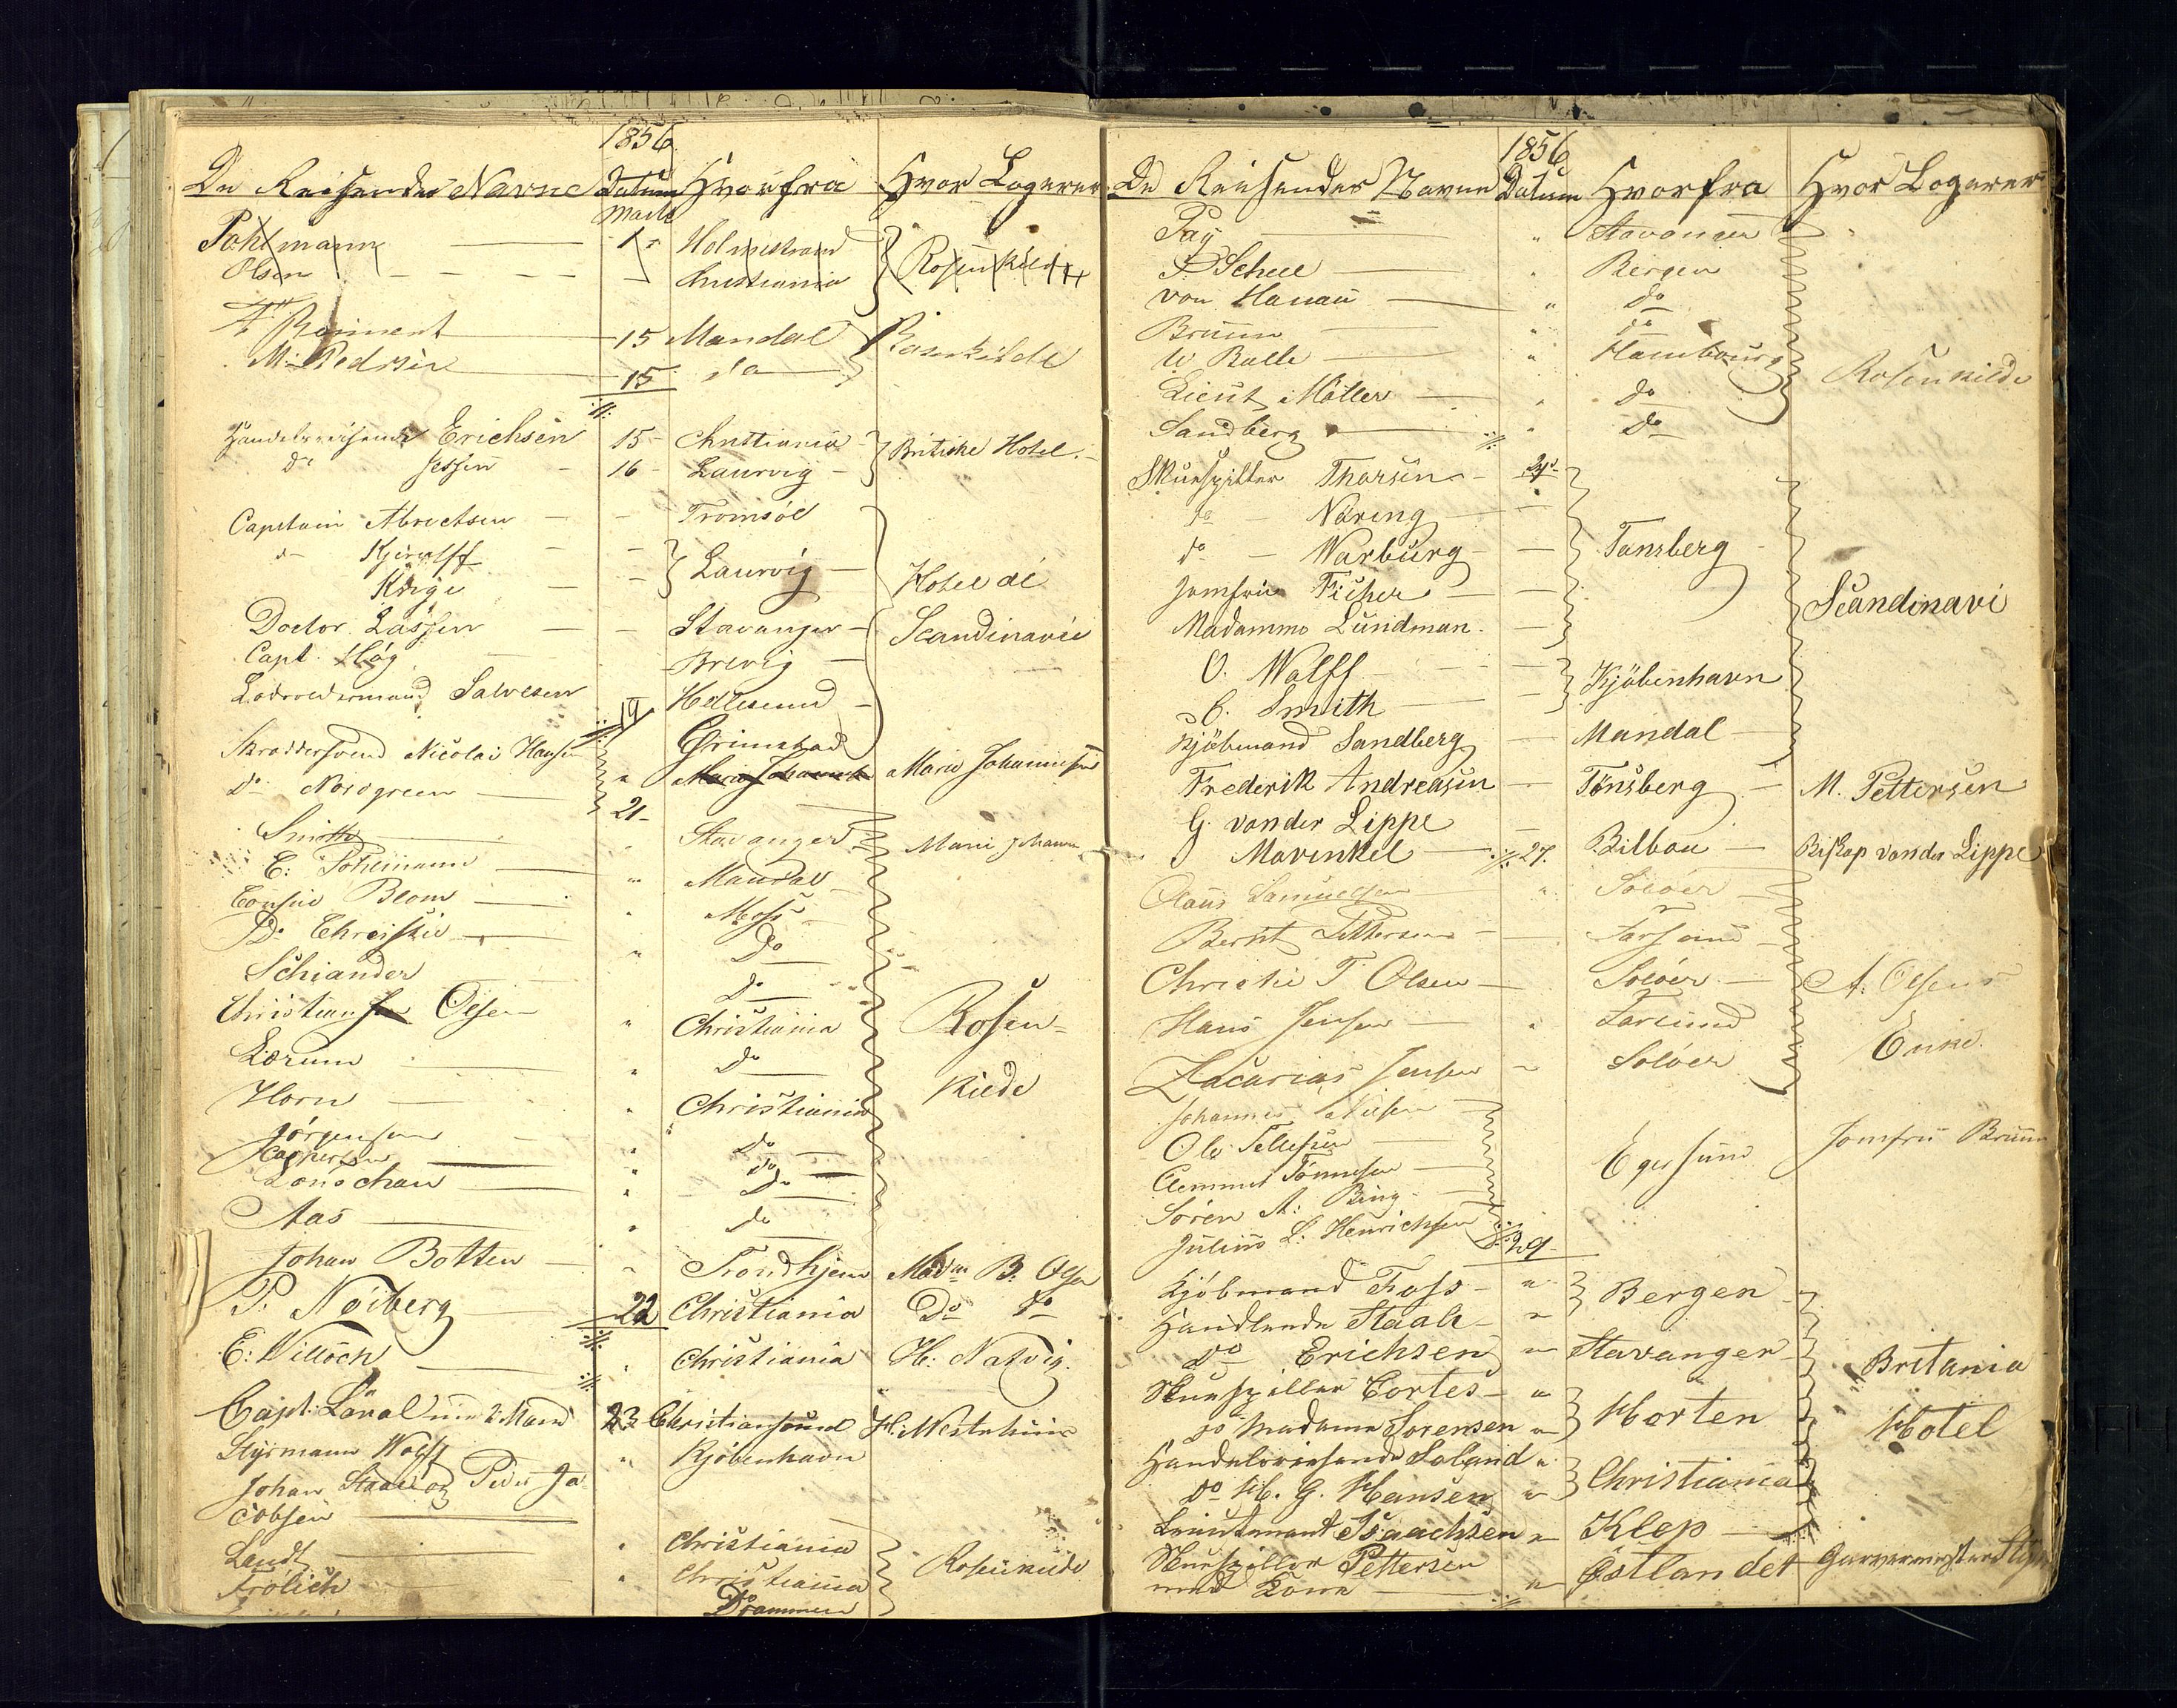 1856
De Reisendes Navne Datum Hvorfra Hvor Logerer
Marts
Pohlmann 1 Holmestrand
Olsen Christiania Rosenkilde
15 Mandal Rosenkilde
M: Pedersen 15 do
Handelsreisende Erichsen 15 Christiania Britiske Hotel
do Jessen 16 Laurvig
Capitain Abrectsen Tromsöe
do Kjerulff Laurvig Hotel de
Krige
Doctor Lassen Stavanger Scandinavie
Capt. Høg Brevig
Salvesen Hellesund
19
Skräddersvend Nicolai Hansen Grimstad Marie Johannesen
do Nordgreen "
21
Smith Stavanger Marie Johann
E: Pohlmann " Mandal
Consul Blom " Moss
Do Christie " Do
Schiander Do
Christiansen Olsen " Christiania Rosen=
Lorum " do
Horn " Christiania kilde
Jörgensen " do
Caspersen " do
Lonschau " Do
Aas " do
Johan Botten " Trondhjem Madm B. Olsen
P: Noiberg 22 Christiania Do do
E: Willoch " Christiania H: Natvig.
Capt: Laval 2 Mand 23 Christiansund
Styrmann Wolff " Kjöbenhavn
Johan Staal og Peder Ja
cobsen
Landt " Christiania Rosenkilde
Frölich " Christiania
Drammen
1856
De Reisendes Navne Datum Hvorfra Hvor Logerer
Pay " Stavanger
P Schee " Bergen
von Hanau " do
Bruun " do
W. Balle " Hambourg Rosenkilde
Lieut Möller " do
Sandberg " Do
Skuespiller Thorsen
do Näring
do Warburg Tønsberg
Jomfrue Fisher Scandinavi
Madamme Lundman
O. Wolff Kjöbenhavn
C. Smith
Kjöbmand Sandberg Mandal
Frederik Andreasen Tønsberg M. Pettersen
G. von der Lippe
Mavinkel 27. Bilbau Biskop von der Lippe
Olaus Samuelsen " Soloer
Bernt Pettersen Farsund
Christie T Olsen Soloer A: Olsens
Hans Jensen " Farsund Enke.
Zacarias Jensen " Soloer
Johannes Nilsen Jomfru Bruun
Ole Tellefsen Egersund
Tönnesen
Sören A: Bing
Julius L: Henrichsen 29
Kjöbmand Foss " Bergen
Handlende Staal "
do Erichsen " Stavanger Britania
Skuespiller Cortes " Horten Hotel
do Madame Sorensen "
Handelsreisende Soland " Christiania
do H. G. Hansen "
Leiutenant Isaachsen " Klep
Skuespiller Pettersen
med Kone " Østlandet Garvermester